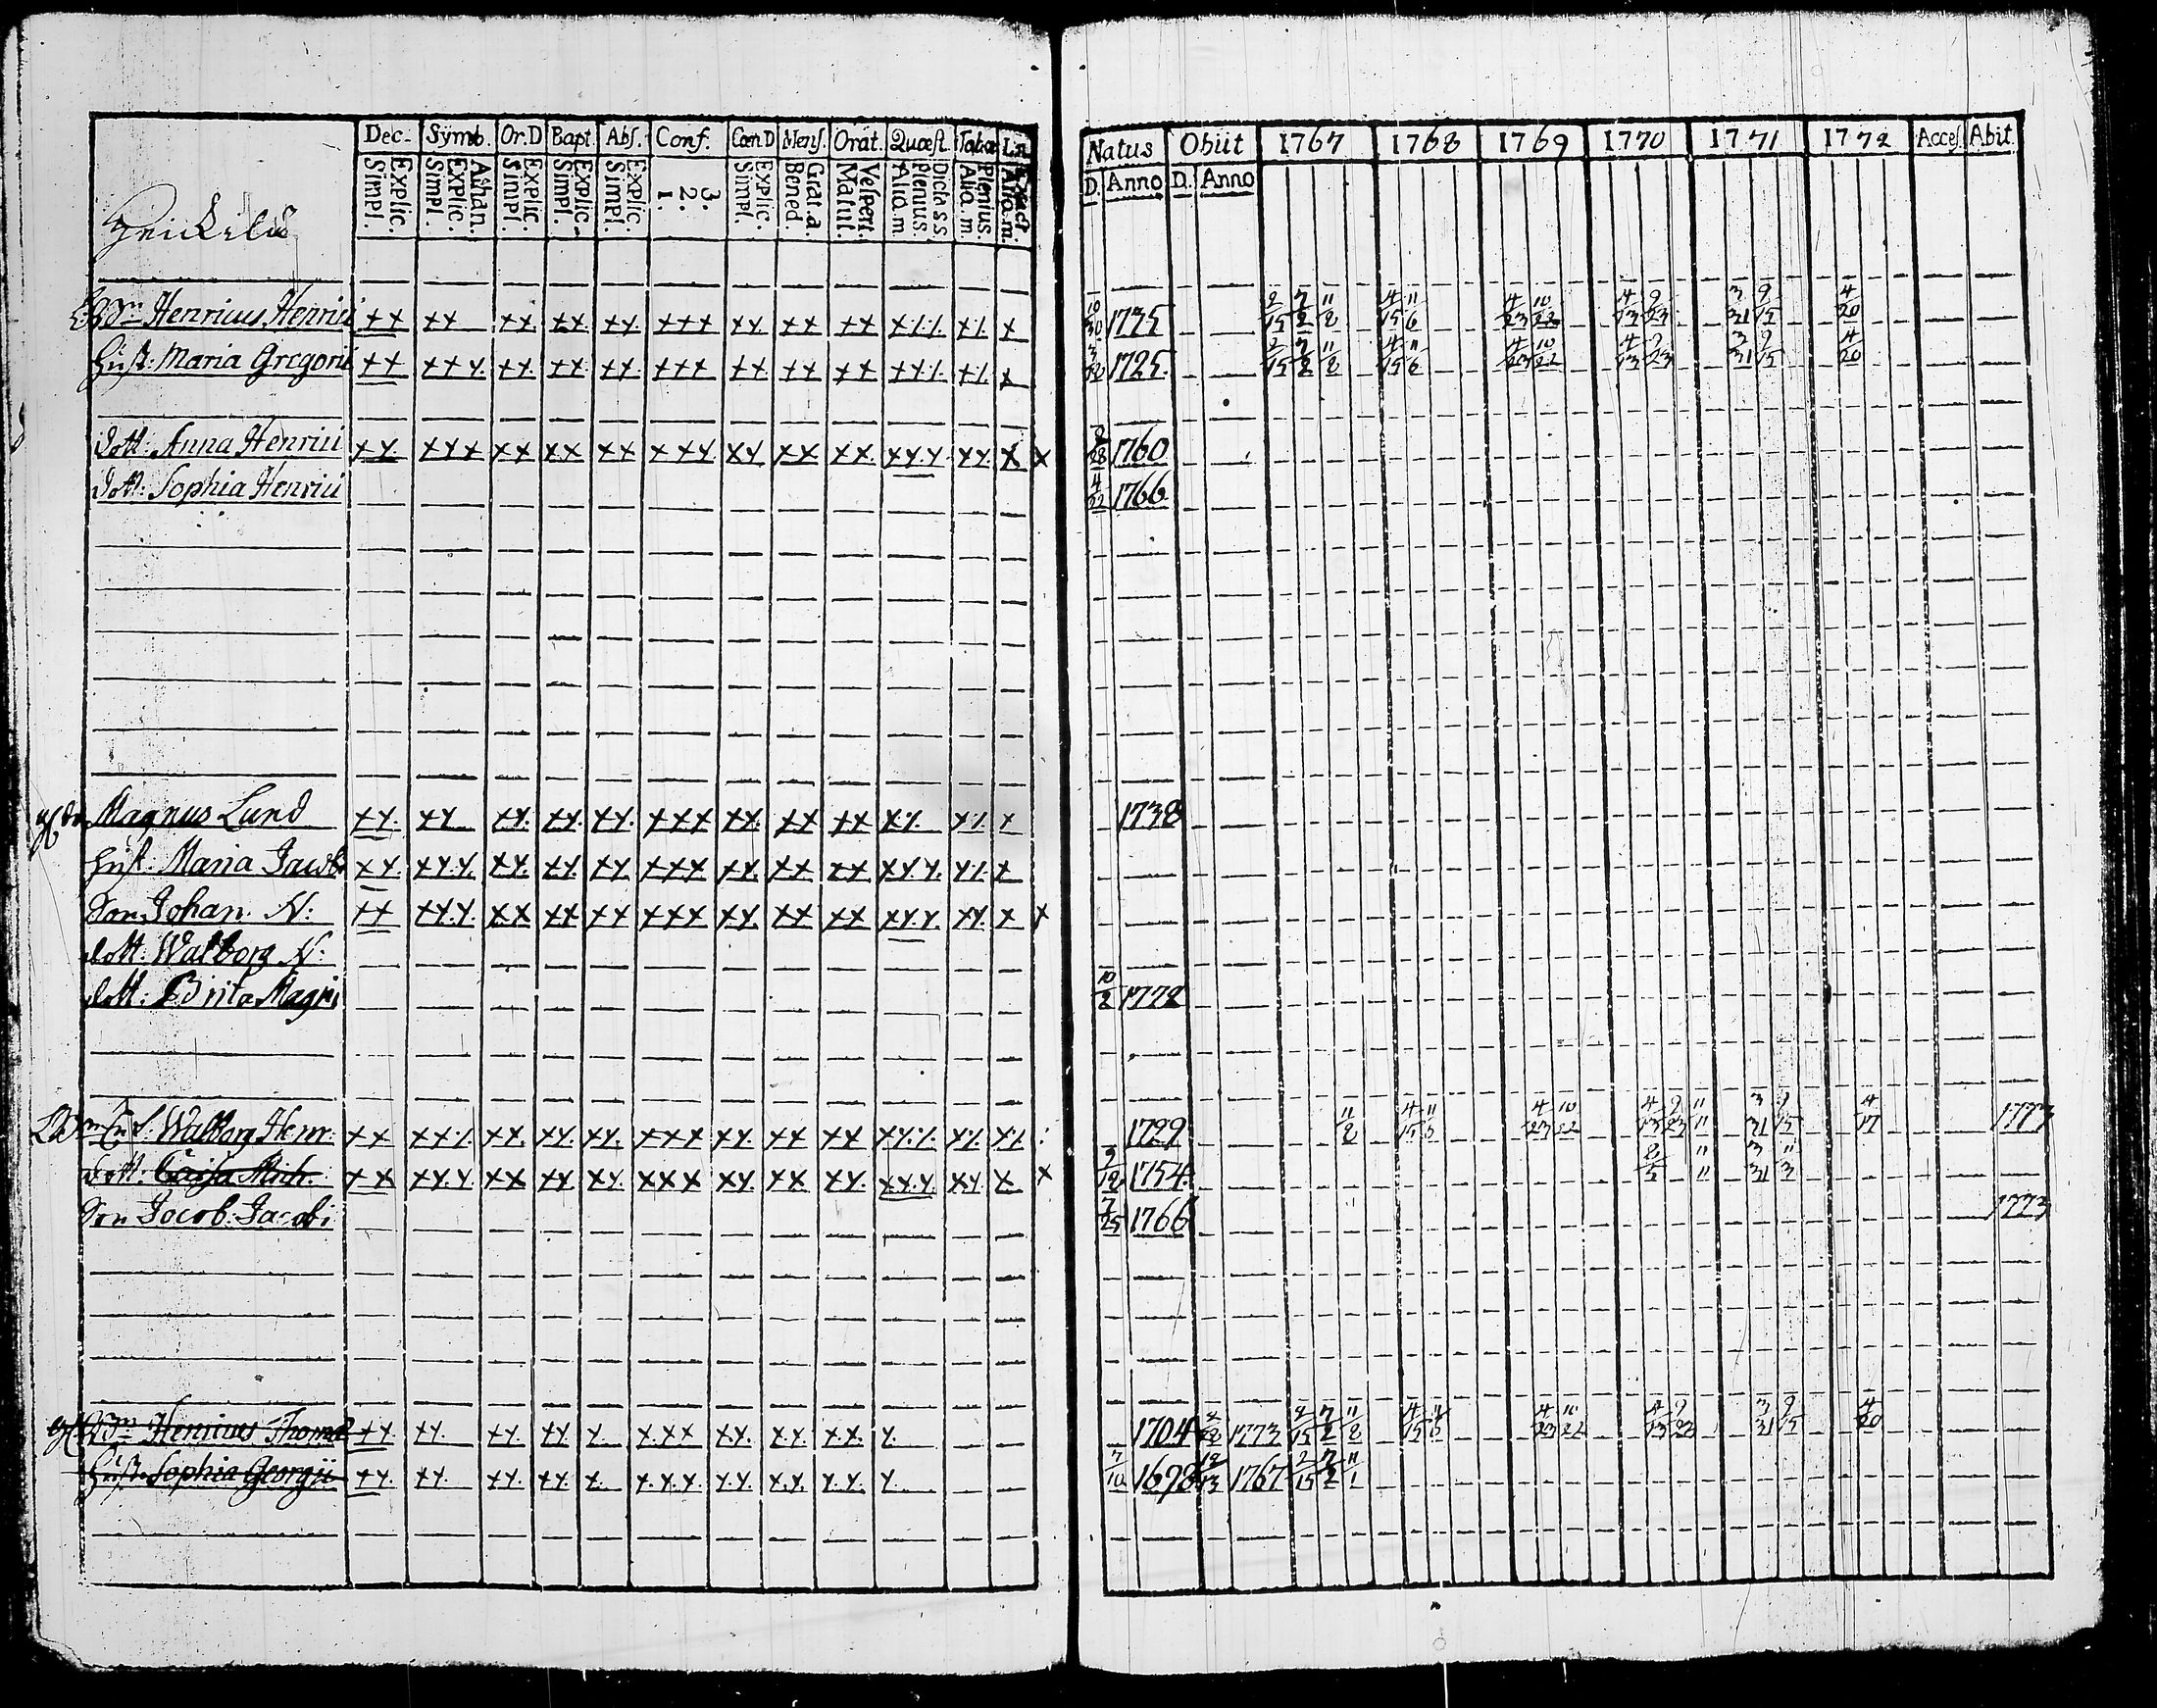 Dec. Symb. Or.D Bapt. Abs. Conf. Cœn D Mens. Orat. Quæst. Tabœ
Explic. Simpl. Athan. Explic. Simpl. Explic. Simpl. Explic. Simpl. Explic. Simpl. 3. 2. 1. Explic. Simpl. Grat.a. Bened. Vespert. Matut. Dicta S S Plenius. Alia. m Plenius. Alia. m. Exact. Alia. m.
Natus Obiit 1767 1768 1769 1770 1771 1772 Acces. Abit
D. Anno D. Anno
Henricus Henrici ×× ×× ×× ×× ×× ××× ×× ×× ×× ×/./. ×/. × 10/30 1735 2/15 7/2 11/8 4/15 11/6 4/23 10/22 4/13 9/23 3/31 9/15 4/20
Hust: Maria Gregorii ×× ××× ×× ×× ×× ××× ×× ×× ×× ××/. ×/. × 1725 2/15 7/2 11/8 4/15 11/6 4/23 10/22 4/13 9/23 3/31 9/15 4/20
dott: Anna Henrici ×× ××× ×× ×× ×× ××× ×× ×× ×× ××× ×× × × 1760
dott: Sophia Henrici 4/22 1766
Magnus Lund ×× ×× ×× ×× ×× ××× ×× ×× ×× ×× ×/. × 1738
Hust: Maria Jacob ×× ××× ×× ×× ×× ××× ×× ×× ×× ××× ×/. ×
Son Johan. N: ×× ××× ×× ×× ×× ××× ×× ×× ×× ××× ×× × ×
dott: Walborg N:
dott: Brita Magni 10/2 1772
Walborg Henr. ×× ××/. ×× ×× ×× ××× ×× ×× ×× ××/. ×/. ×/. 1729 11/8 4/15 4/23 10/22 4/13 9/23 11/11 3/31 9/15 4/17 1773
dott: Caisa Mich. ×× ××× ×× ×× ×× ××× ×× ×× ×× ××× ×× × × 1754 8/5 3/31 11/3
Son Jacob: Jacobi 7/25 1766 1773
Henricus Thomæ ×× ×× ×× ×× × ××× ×× ×× ×× × 1704 1773 2/15 7/2 11/8 4/15 4/23 4/13 9/23 3/31 9/15 4/20
Hust: Sophia Georgii ×× ×× ×× ×× × ××× ×× ×× ×× × 7/10 1698 12/13 1767 2/15 7/2 11/1